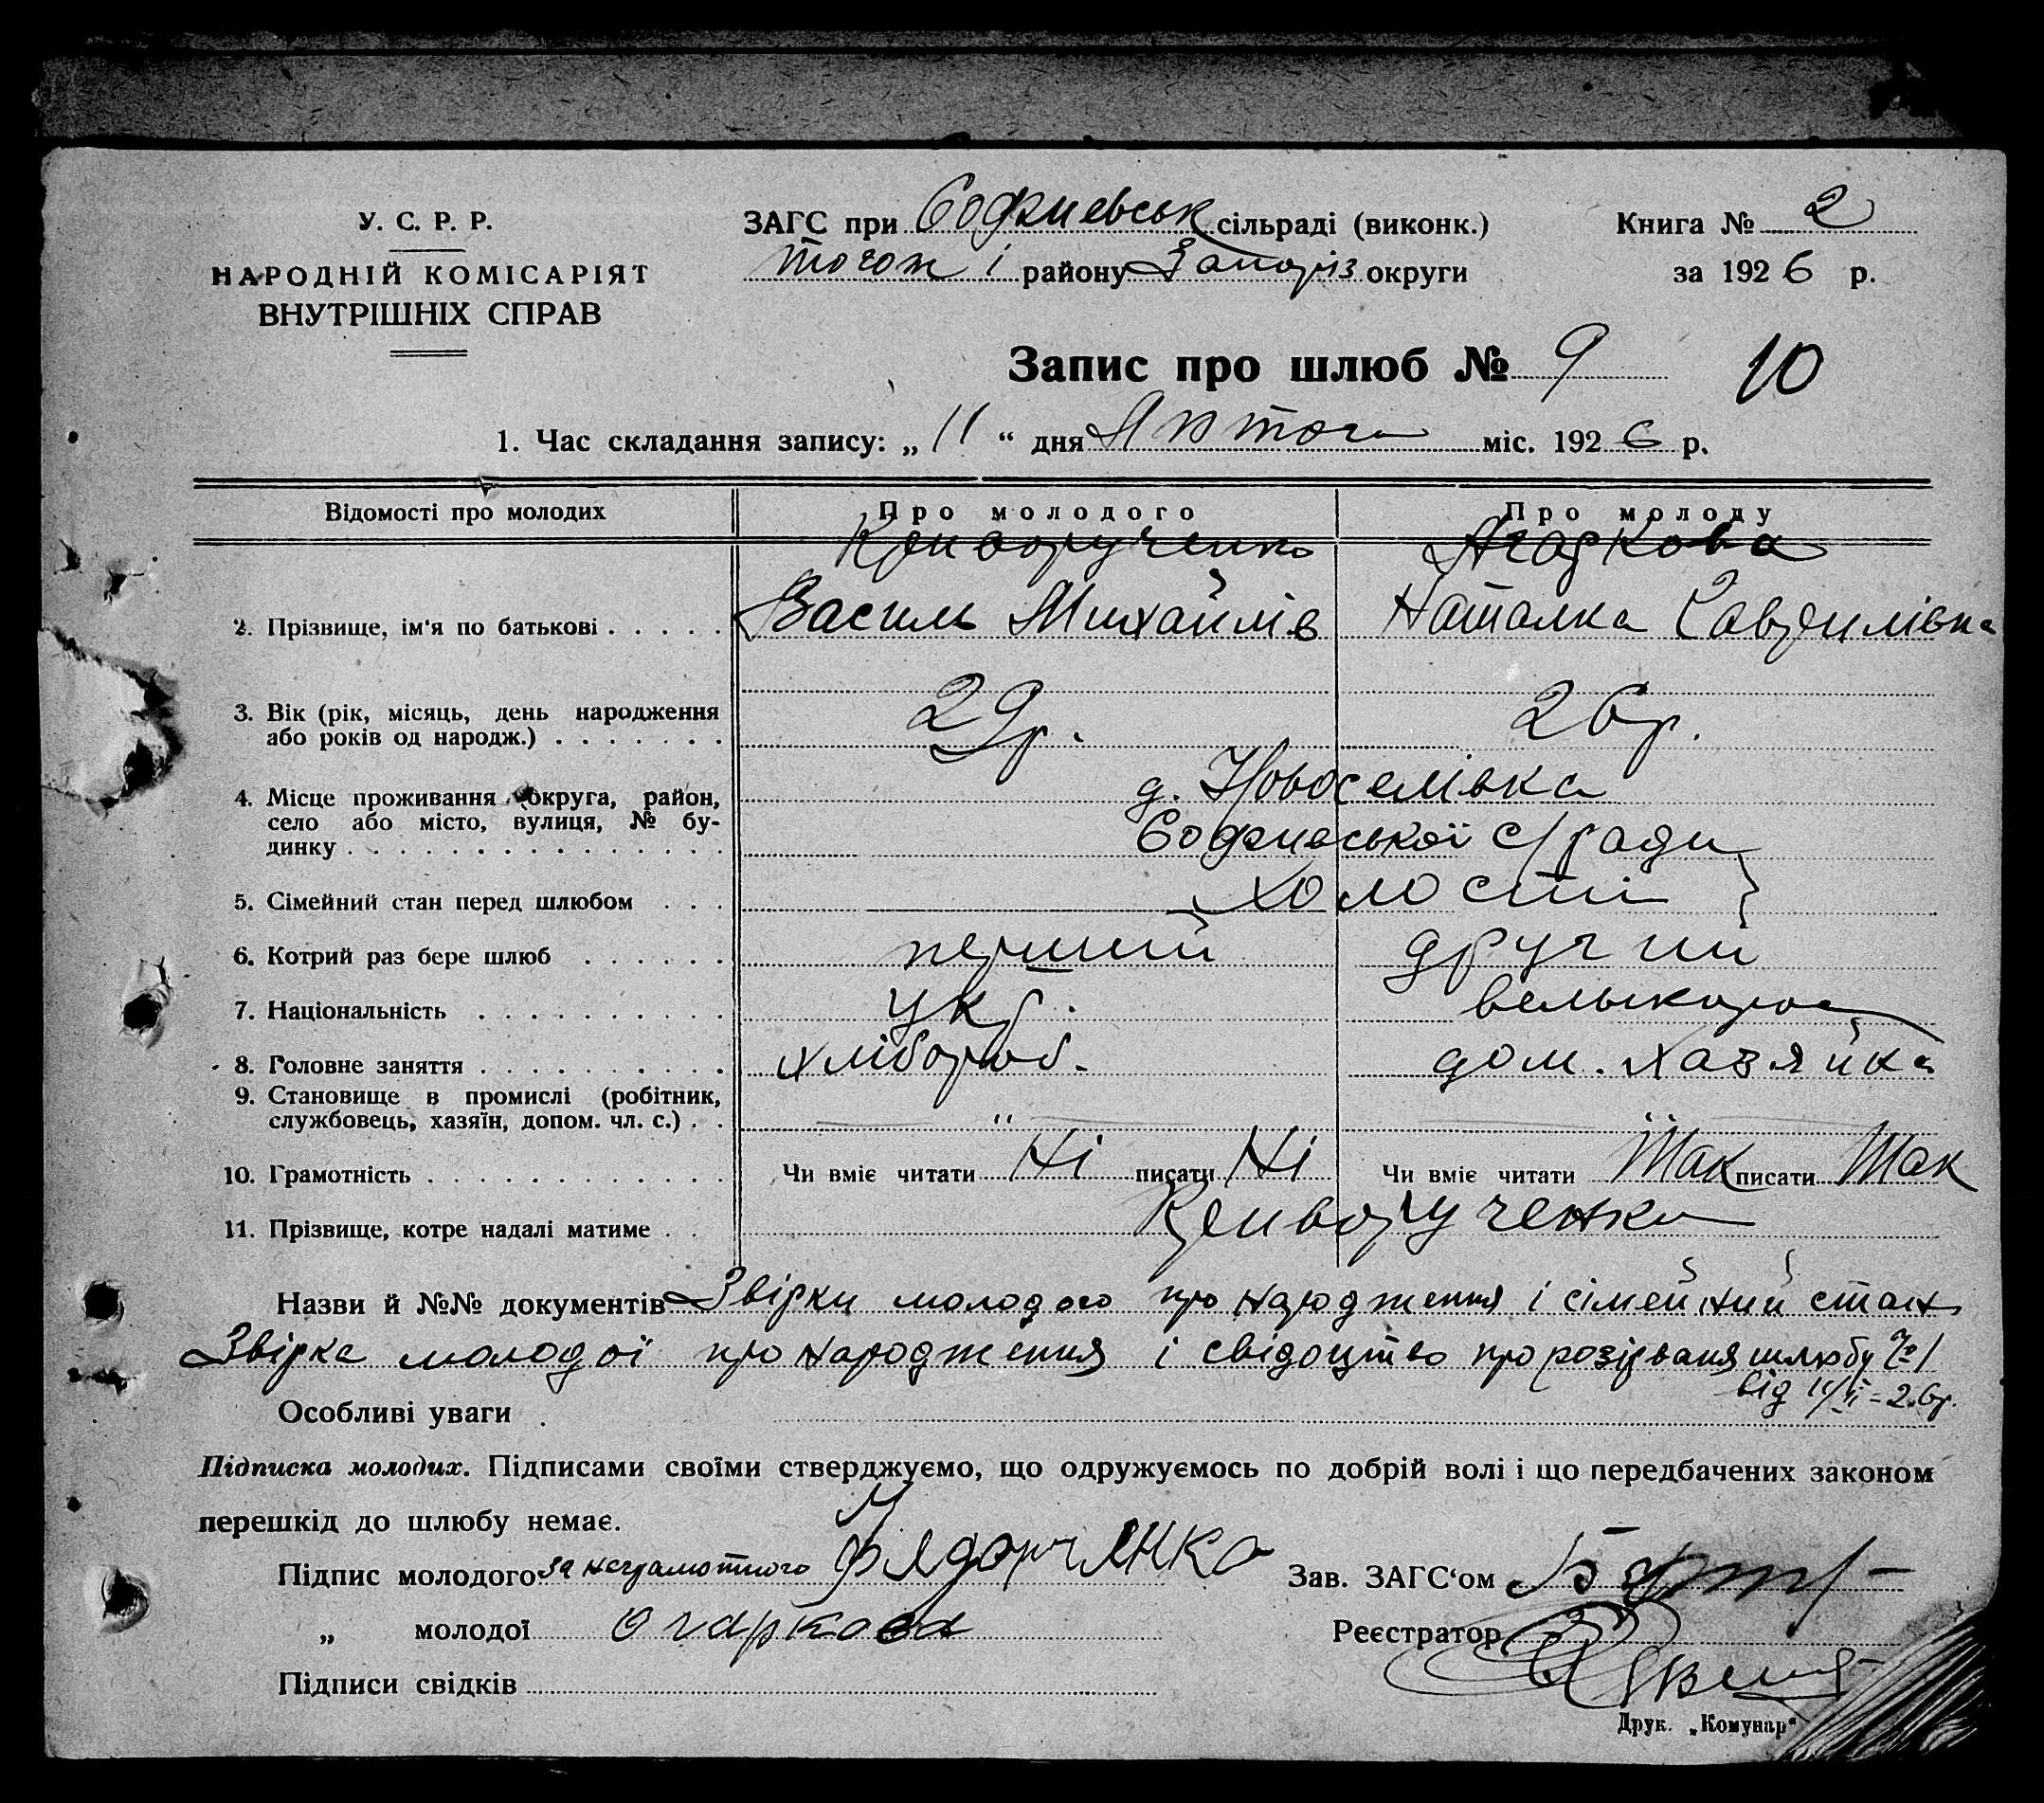 У. С. Р. Р.
НАРОДНІЙ КОМІСАРІЯТ
ВНУТРІШНІХ СПРАВ
ЗАГС при Софиевськ сільраді (виконк.)
тогож і району Запоріз округи
Книга № 2
за 1926 р.
Запис про шлюб № 9 10
1. Час складання запису: „ 11 “ дня Лютого міс. 1926 р.
Відомості про молодих Про молодого Про молоду
Криворученко Агаркова
2. Прізвище, ім'я по батькові . . . . . Василь Михайлів Наталка Гаврилівна
3. Вік (рік, місяць, день народження
або років од народж.) . . . . . . . 29 р. 26 р.
4. Місце проживання (округа, район, д. Новоселівка
село або місто, вулиця, № бу- Софиевської с/ради
динку . . . . . . . . . . . . . .
5. Сімейний стан перед шлюбом . . . холості }
6. Котрий раз бере шлюб . . . . . . перший другий
7. Національність . . . . . . . . . . укр. велыкорос
8. Головне заняття . . . . . . . . . . хлібороб. дом. хазяйка
9. Становище в промислі (робітник,
службовець, хазяїн, допом. чл. с.) . . " "
10. Грамотність . . . . . . . . . . . . Чи вміє читати Ні писати Ні Чи вміє читати Так писати Так
11. Прізвище, котре надалі матиме . . Криворученко
Назви й №№ документів Звірки молодого про народження і сімейний стан
Звірка молодої про народження і свідоцтво про розірваня шлюбу № 1
від 11/II-26р.
Особливі уваги .
Підписка молодих. Підписами своїми стверджуємо, що одружуємось по добрій волі і що передбачених законом
перешкід до шлюбу немає.
Підпис молодого за неграмотного Фядорчянко
Зав. ЗАГС‘ом
„ молодої огаркова
Реєстратор
Підписи свідків
Друк. „Комунар“